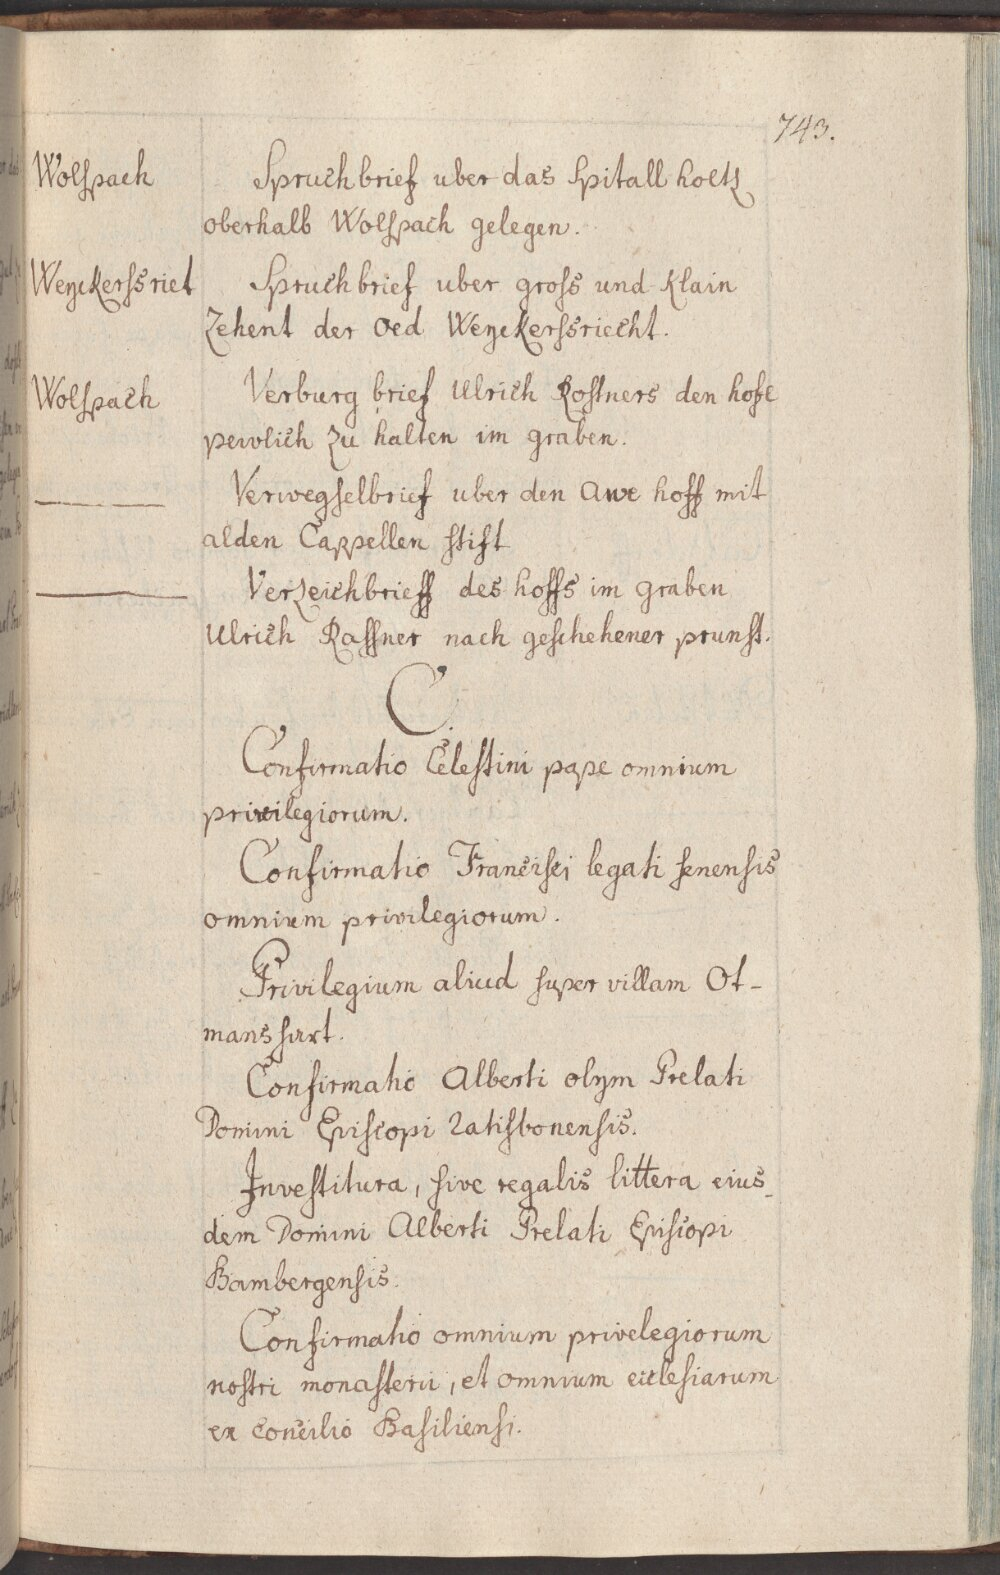 743.
Wolfpach Spruchbrief uber das Spitall holtz
oberhalb Wolfpach gelegen.
Weyckersriet Spruchbrief uber gross und Klain
Zehent der Oed Weyckersriecht.
Wolfpach Verburg brief Ulrich Rostners den hofe
pewlich zu halten im graben.
Verwegselbrief uber den Awe hoff mit
alden Cappellen stift
Verzeichbrieff des hoffs im graben
Ulrich Rassner nach geschehener prunst.
C.
Confirmatio Celestini pape omnium
privilegiorum.
Confirmatio Francisci legati senensis
omnium privilegiorum.
Privilegium aliud super villam Ot-
manshart.
Confirmatio Alberti olym Prelati
Domini Episcopi Ratisbonensis.
Investitura, sive regalis littera eius-
dem Domini Alberti Prelati Episcopi
Bambergensis.
Confirmatio omnium privelegiorum
nostri monasterii, et omnium ecclesiarum
ex Concilio Basiliensi.